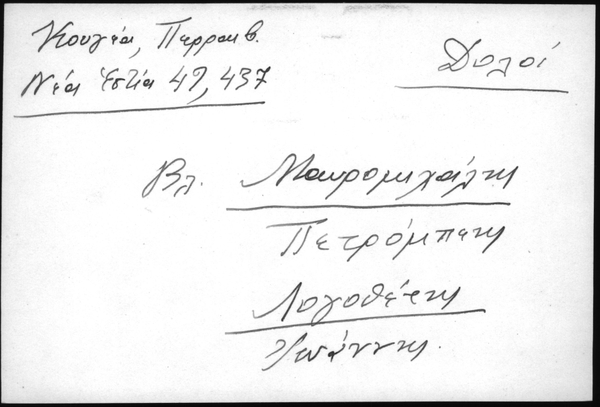 Κουγέα, Περραιβ.
Νέα Ἑστία 49, 437
Δολοί
Βλ. Μαυρομιχάλης
Πετρόμπεης
Λογοθέτης
Ἰωάννης.